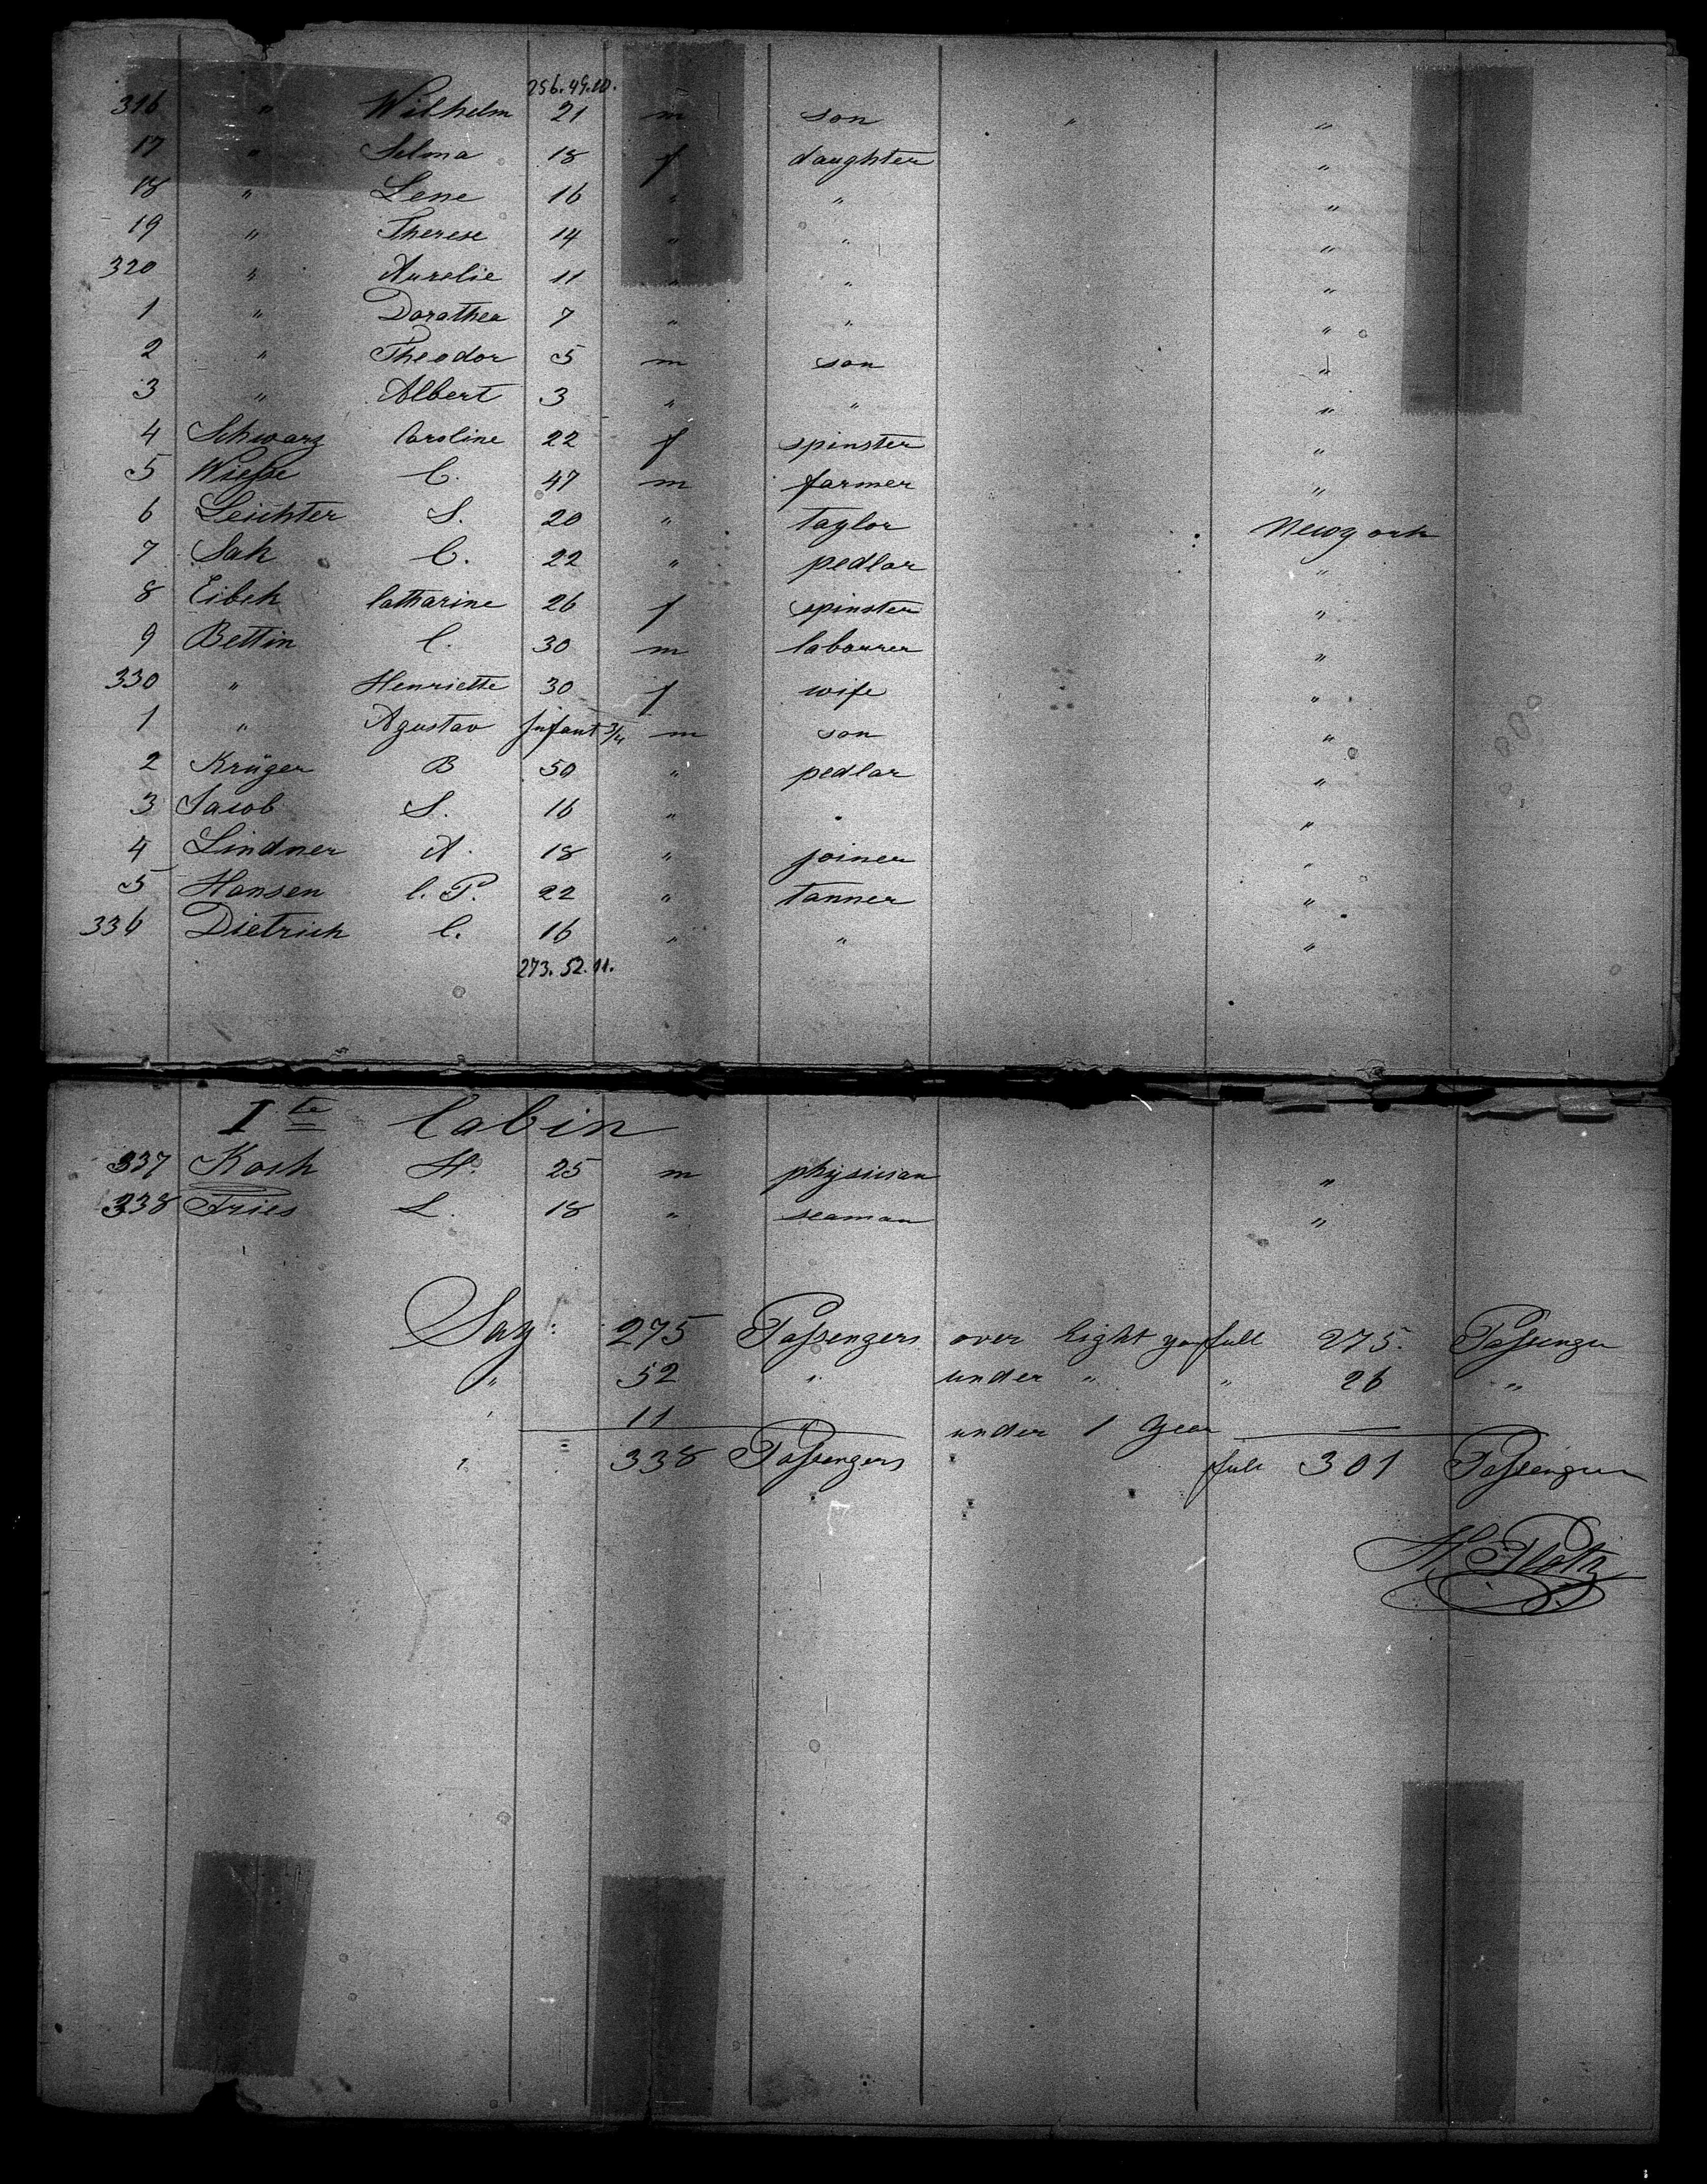 256. 49. 10.
316 " Wilhelm 21 m son " "
17 " Selma 18 f daughter "
18 " Lene 16 " " "
19 " Therese 14 " " "
320 " Aurelie 11 " " "
1 " Dorothea 7 " " "
2 " Theodor 5 m son "
3 " Albert 3 " " "
4 Schwarz Caroline 22 f spinster "
5 Wieße C. 47 m farmer "
6 Leichter S. 20 " taylor Newyork
7 Sak C. 22 " pedlar "
8 Eibek Catharine 26 f spinster "
9 Bettin C. 30 m labourer "
330 " Henriette 30 f wife "
1 " Agustav Infant 3/4 m son "
2 Krüger B 50 " pedlar "
3 Jacob S. 16 " " "
4 Lindner A. 18 " joiner "
5 Hansen C. P. 22 " tanner "
336 Dietrich C. 16 " " "
273. 52. 11.
I te Cabin
337 Koch H. 25 m physician "
338 Fries L. 18 " seaman "
Say: 275 Paßengers over Eight full 275. Paßenger
" 52 " under " " 26 "
" 11 " under 1 Year —
" 338 Paßengers full 301 Paßenger
H. Platz